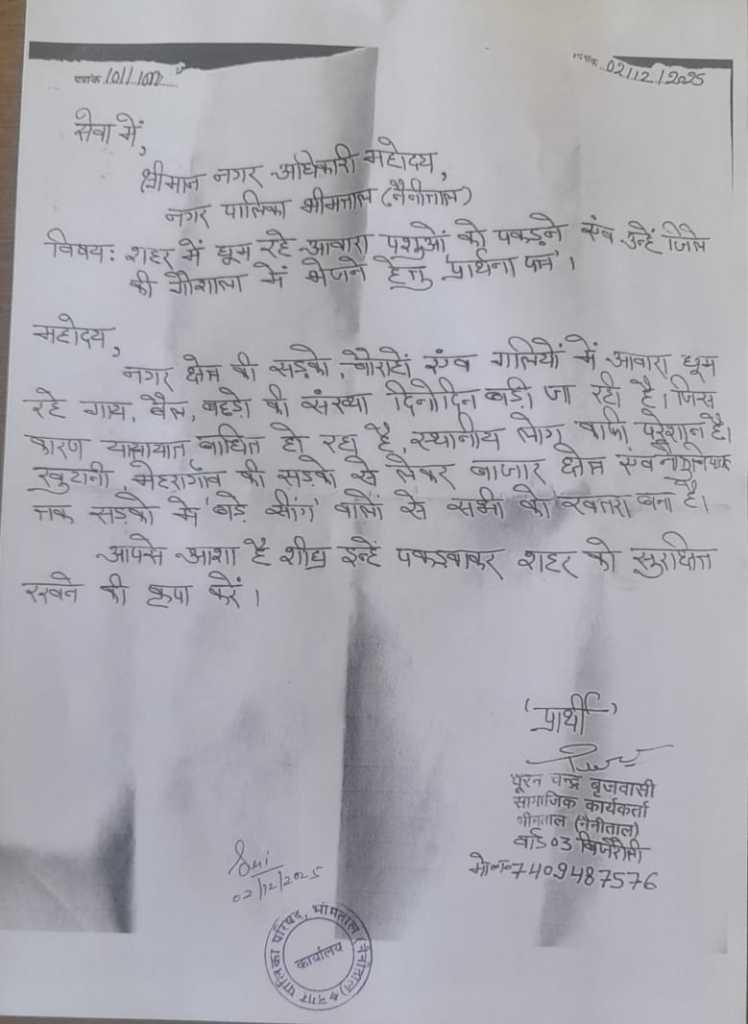 पत्रांक 1011/1002
दिनांक 02/12/2025
सेवा में,
श्रीमान नगर अधिकारी महोदय,
नगर पालिका भीमताल (नैनीताल)
विषय: शहर में घूम रहे आवारा पशुओं को पकड़ने एंव उन्हें जिले
की गौशाला में भेजने हेतु 'प्रार्थना पत्र'।
महोदय,
नगर क्षेत्र की सड़को, चौराहों एंव गलियों में आवारा घूम
रहे गाय, बैल, बछड़ो की संख्या दिनोदिन बढ़ती जा रही है। जिस
कारण यातायात बाधित हो रहा है, स्थानीय लोग काफी परेशान है।
खुटानी, मेहरागाँव की सड़को से लेकर बाजार क्षेत्र एंव
तक सड़को में 'बड़े सींग' वालों से सभी को खतरा बना है।
आपसे आशा है शीघ्र इन्हें पकड़वाकर शहर को सुरक्षित
रखने की कृपा करें।
'प्रार्थी'
पूरन चन्द्र बृजवासी
सामाजिक कार्यकर्ता
भीमताल (नैनीताल)
वार्ड 03
मो०न० 7409487576
02/12/2025
नगर पालिका परिषद, भीमताल (नैनीताल)
कार्यालय